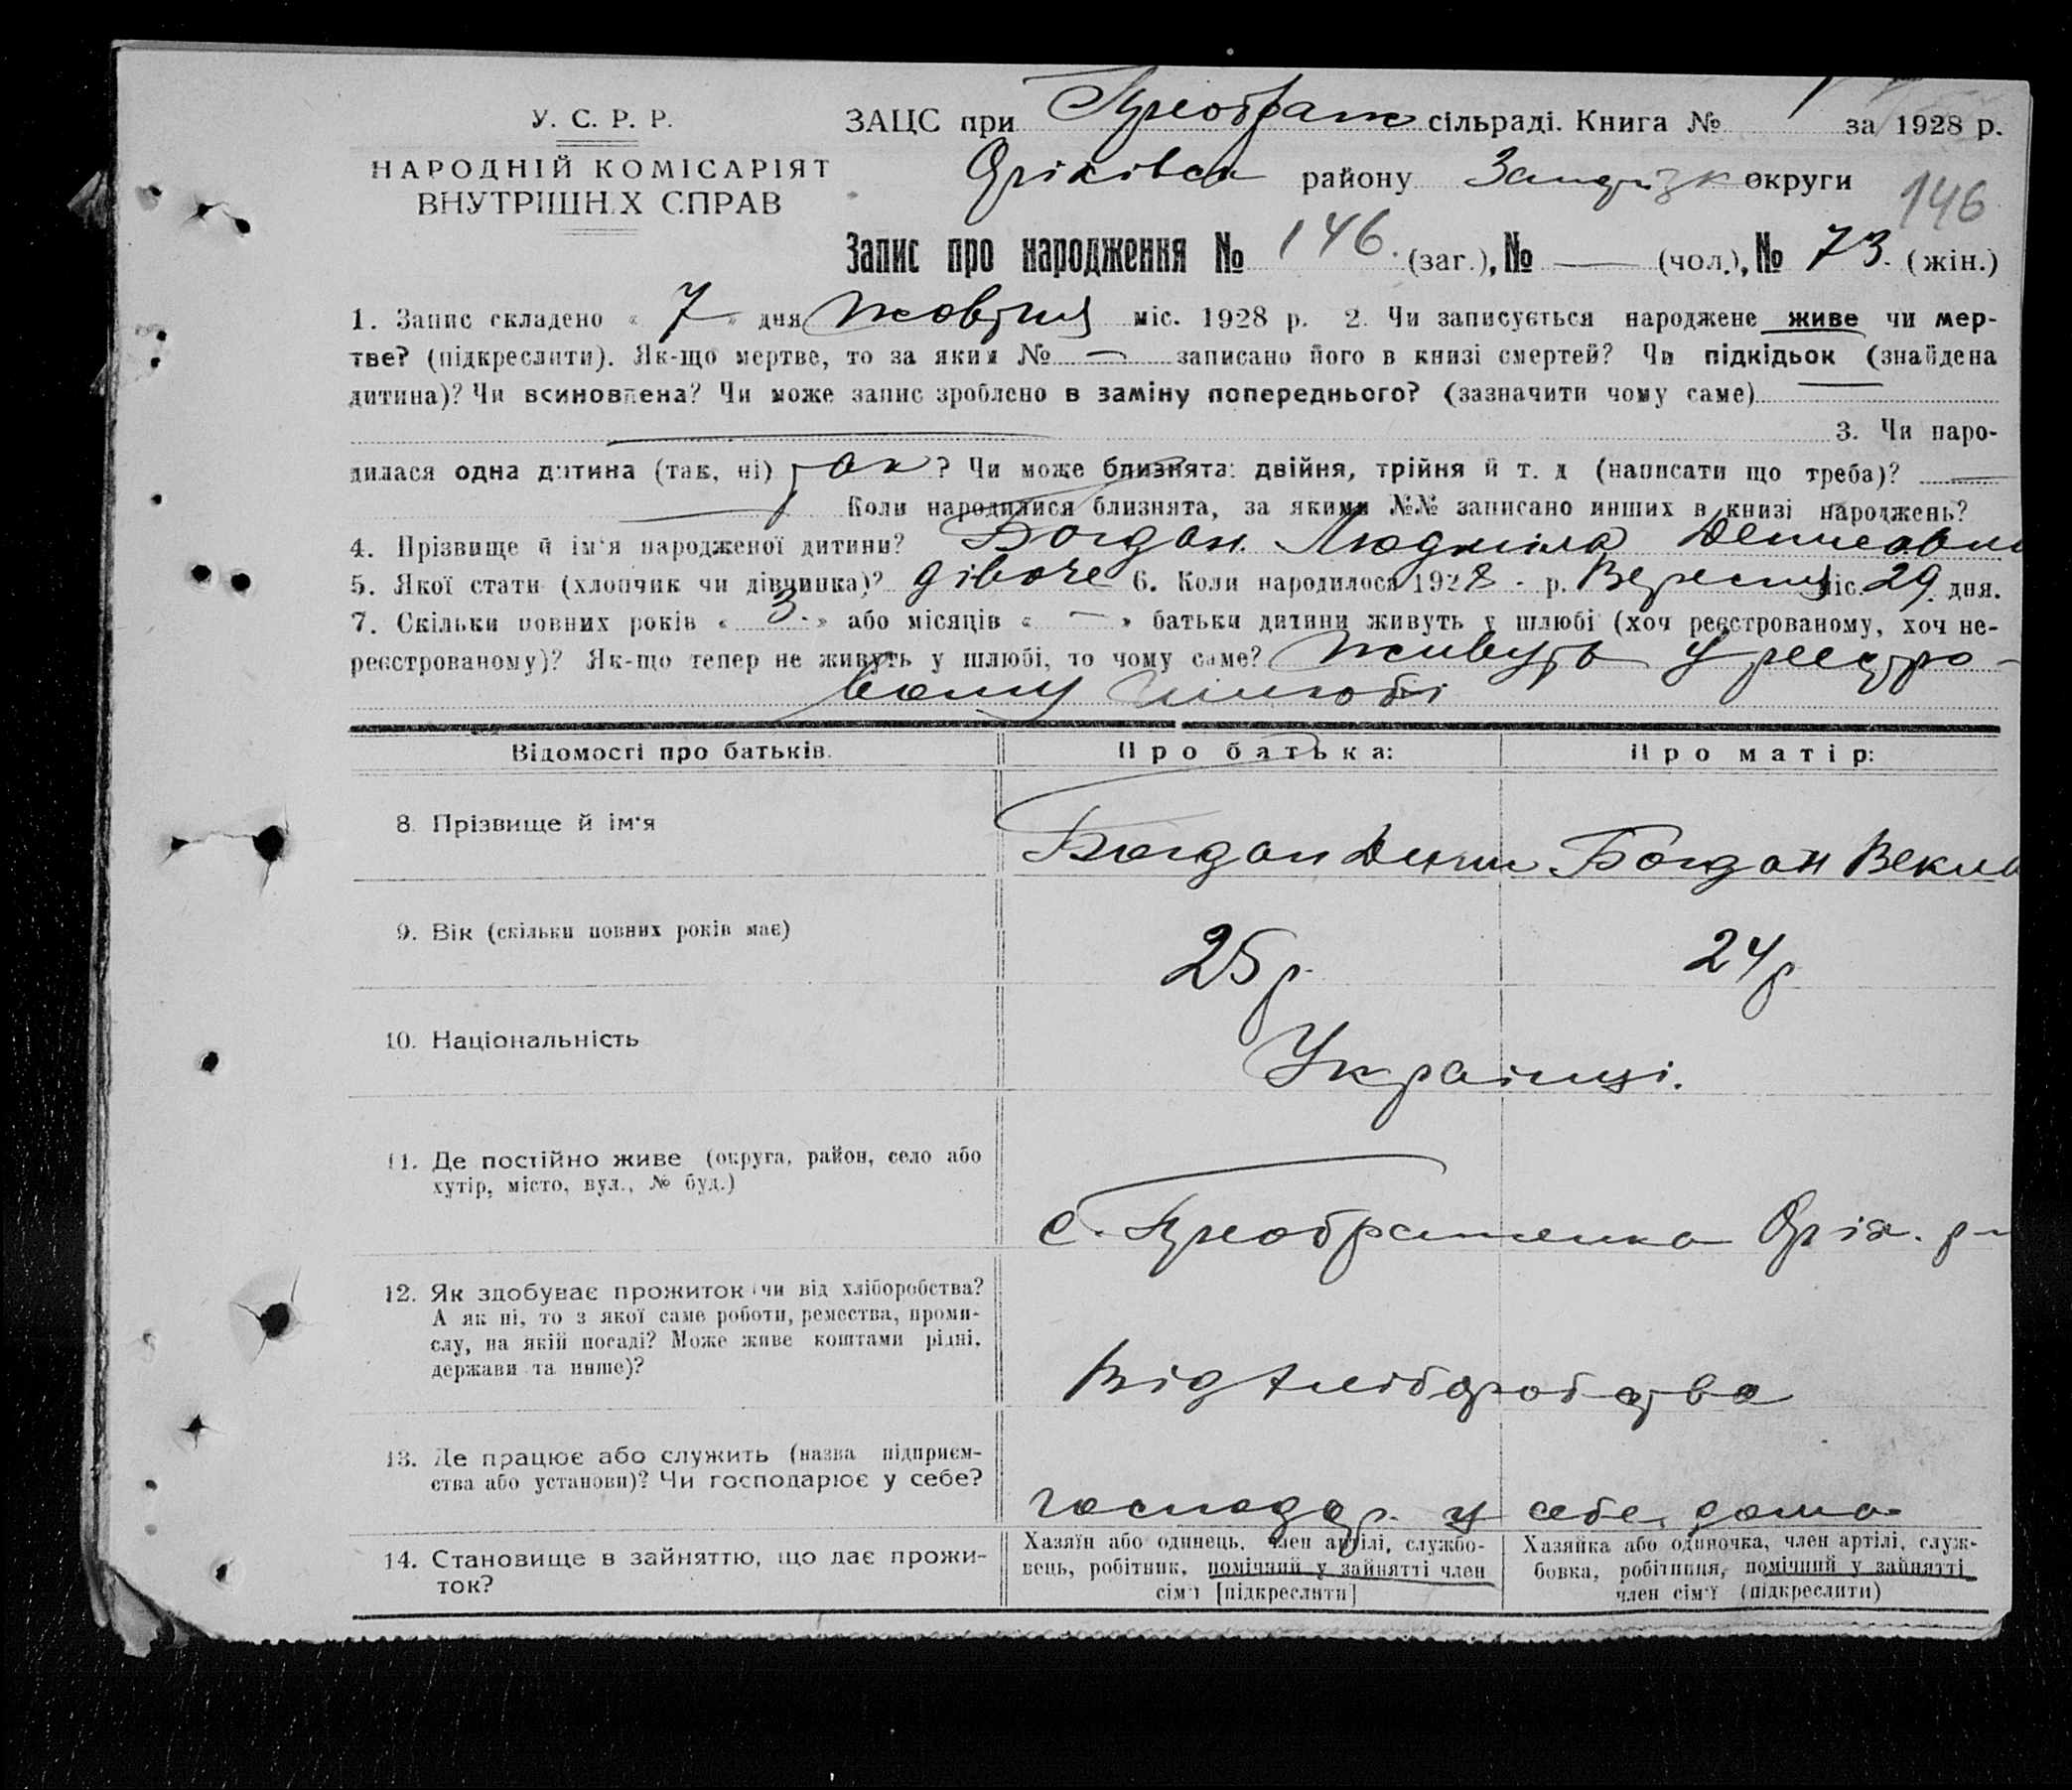 У. С. Р. Р.
НАРОДНІЙ КОМІСАРІЯТ
ВНУТРІШН.Х СПРАВ
ЗАЦС при Преображ сільраді. Книга № 1 за 1928 р.
Оріхівськ району Запоріз округи
146
Запис про народження № 146. (заг.), № — (чол.), № 73. (жін.)
1. Запис складено « 7 » дня жовтня міс. 1928 р. 2. Чи записується народжене живе чи мер-
тве? (підкреслити). Як-що мертве, то за яким № — записано його в книзі смертей? Чи підкідьок (знайдена
дитина)? Чи всиновлена? Чи може запис зроблено в заміну попереднього? (зазначити чому саме) —
— 3. Чи наро-
дилася одна дитина (так, ні) так? Чи може близнята: двійня, трійня й т. д (написати що треба)? —
— Коли народилися близнята, за якими №№ записано инших в книзі народжень?
4. Прізвище й ім'я народженої дитини? Богдан Людміла Денисовна
5. Якої стати (хлопчик чи дівчинка)? дівоче 6. Коли народилося 1928 - р. Вересня міс. 29 дня.
7. Скільки повних років « 3 - » або місяців « — » батьки дитини живуть у шлюбі (хоч реєстрованому, хоч не-
реєстрованому)? Як-що тепер не живуть у шлюбі, то чому саме? живуть у реєстро-
ваному шлюбі
Відомості про батьків.
Про батька:
Про матір:
8. Прізвище й ім'я
Богдан Денис
Богдан Векла
9. Вік (скільки повних років має)
25 р.
24 р
10. Національність
Українці.
11. Де постійно живе (округа, район, село або
хутір, місто, вул., № буд.)
с. Преображенка Оріх. р-н
12. Як здобуває прожиток (чи від хліборобства?
А як ні, то з якої саме роботи, ремества, проми-
слу, на якій посаді? Може живе коштами рідні,
держави та инше)?
Від хліборобства
13. Де працює або служить (назва підприєм-
ства або установи)? Чи господарює у себе?
господар. у себе дома
14. Становище в зайняттю, що дає прожи-
ток?
Хазяїн або одинець, член артілі, службо-
вець, робітник, помічний у зайнятті член
сім'ї [підкреслити]
Хазяйка або одиночка, член артілі, служ-
бовка, робітниця, помічний у зайнятті
член сім'ї (підкреслити)